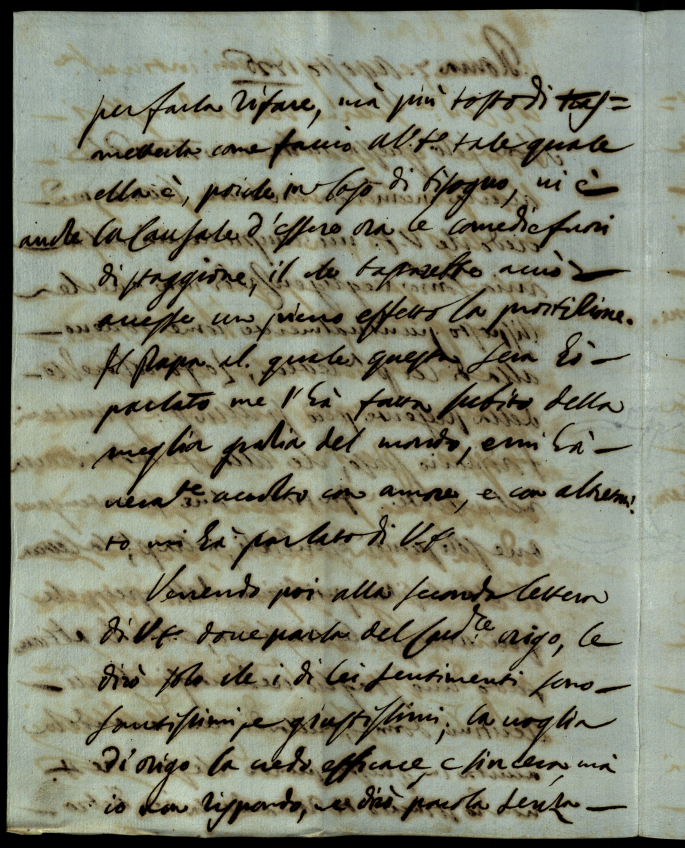 per farla rifare, mà più tosto di tras=
metterla come faccio al'. tale quale
ella è, poiche in Caso di bisogno, vi è
anche la Causale d'essere ora le comedie fuori
di staggione, il che
avesse un pieno effetto la
Il Papa al quale questa sera hò
parlato me l'hà fatta subito della
meglia gratia del mondo, e mi hà
verate accolto con amore, e con altretan:
to mi hà parlato di V.E.
Venendo poi alla seconda lettera
di V.E. dove parla del Cardle origo, le
dirò solo che i di lei sentimenti sono
santissimi, e giustissimi, la voglia
di origo la credo efficace, e sincera, mà
io non rispondo, ne dirò parola senza